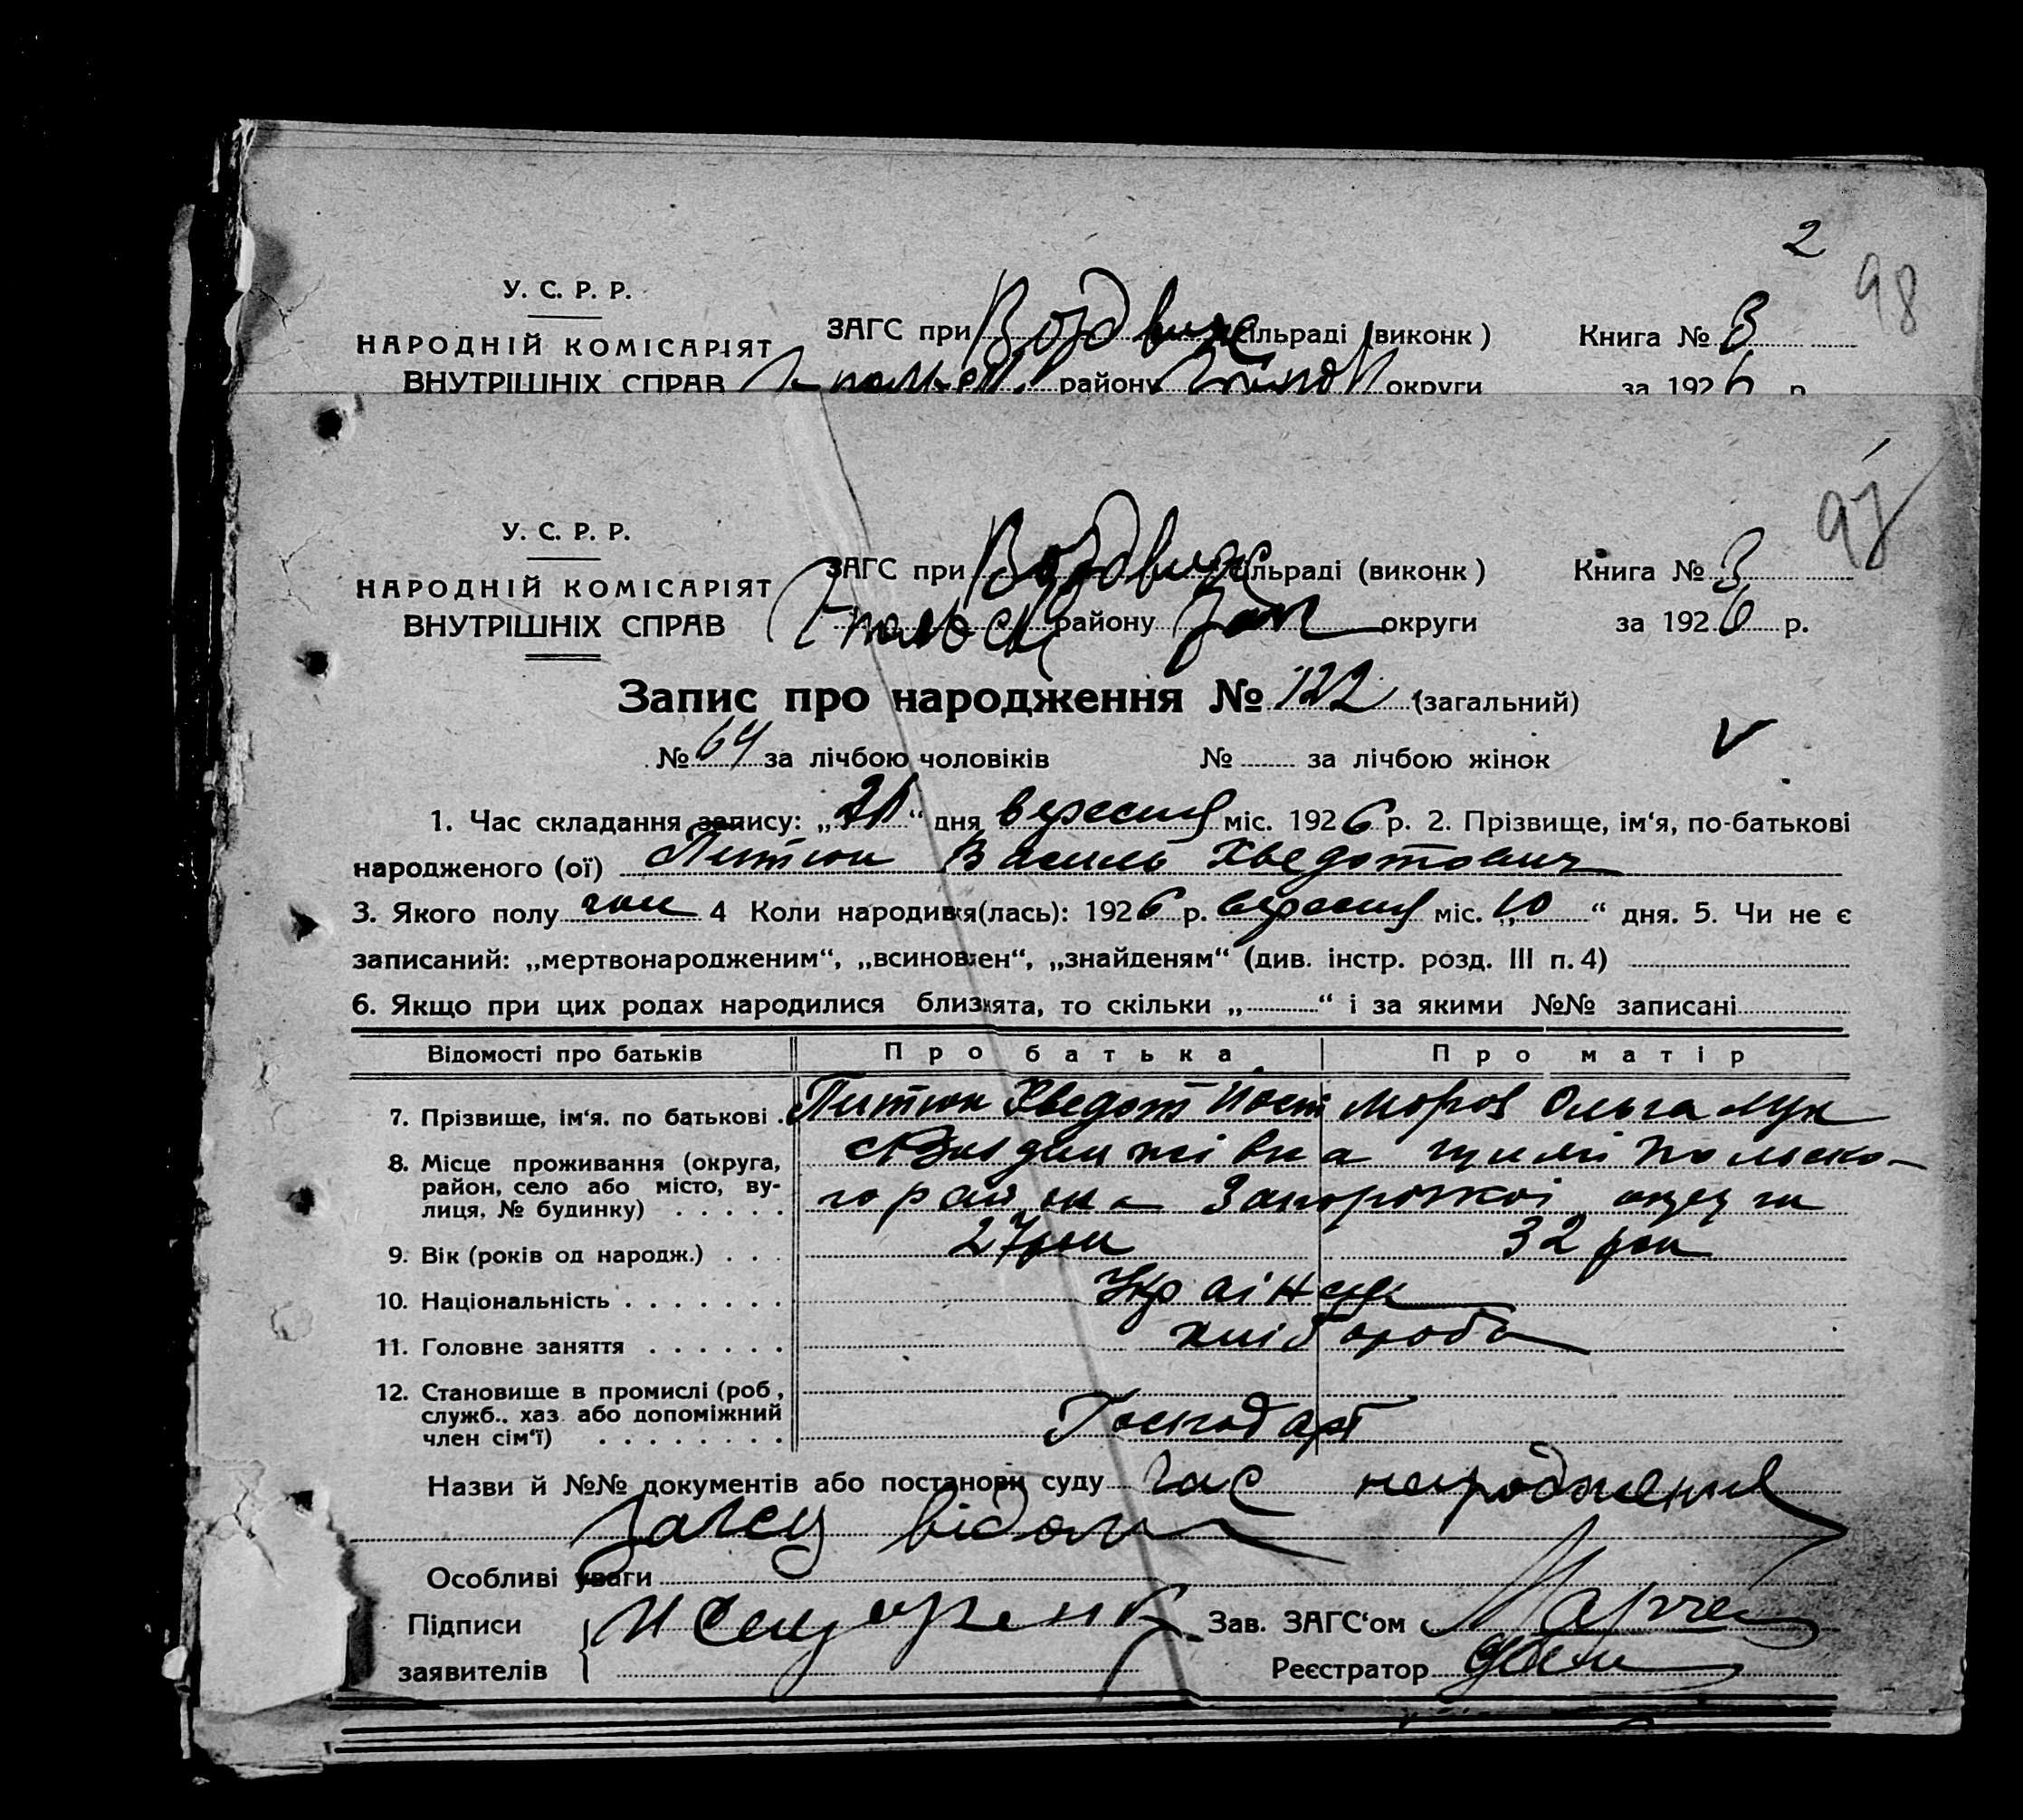 2
98
У. С. Р. Р.
ЗАГС при Воздвиж сільраді (виконк) Книга № 3
НАРОДНІЙ КОМІСАРІЯТ
ВНУТРІШНІХ СПРАВ району округи за 1926 р.
97
У. С. Р. Р.
ЗАГС при Воздвиж сільраді (виконк) Книга № 3
НАРОДНІЙ КОМІСАРІЯТ
ВНУТРІШНІХ СПРАВ Гпольськ району Зап округи за 1926 р.
Запис про народження № 122 (загальний)
№ 64 за лічбою чоловіків № за лічбою жінок
1. Час складання запису: „21“ дня вересня міс. 1926 р. 2. Прізвище, ім‘я, по-батькові
народженого (ої) Питюн Василь Хведотович
3. Якого полу чол 4 Коли народився(лась): 1926 р. вересня міс. „10“ дня. 5. Чи не є
записаний: „мертвонародженим“, „всиновлен“, „знайденям“ (див. інстр. розд. III п. 4)
6. Якщо при цих родах народилися близнята, то скільки „ “ і за якими №№ записані
Відомості про батьків Про батька Про матір
7. Прізвище, ім‘я. по батькові Питюн Хведот Мороз Ольга Лук
8. Місце проживання (округа, Воздвижівка Гуляй Польсько-
район, село або місто, ву- го района Запоріжкоі округи
лиця, № будинку)
9. Вік (років од народж.) 27 рок 32 рок
10. Національність Украінці
11. Головне заняття хлібороб
12. Становище в промислі (роб,
служб., хаз. або допоміжний Господарі
член сім‘ї)
Назви й №№ документів або постанови суду час народження
Загсу відом
Особливі уваги
Підписи Зав. ЗАГС‘ом Марче
заявителів Реєстратор